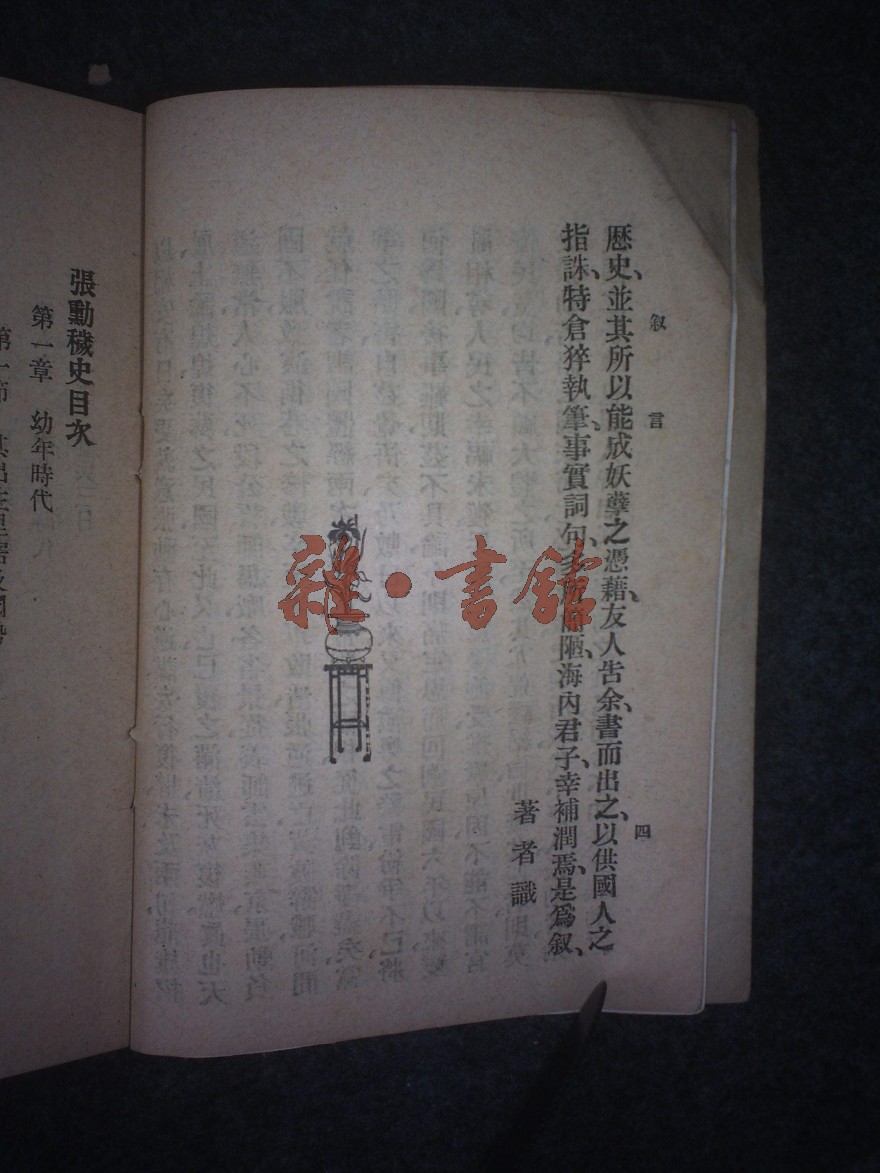 叙言
四
歷史、並其所以能成妖孽之憑藉、友人吿余、書而出之、以供國人之
指誅、特倉猝執筆、事實詞句、多陋、海內君子、幸補潤焉、是爲叙、
著者識
張勳穢史目次
第一章 幼年時代
第一節
雜·書館